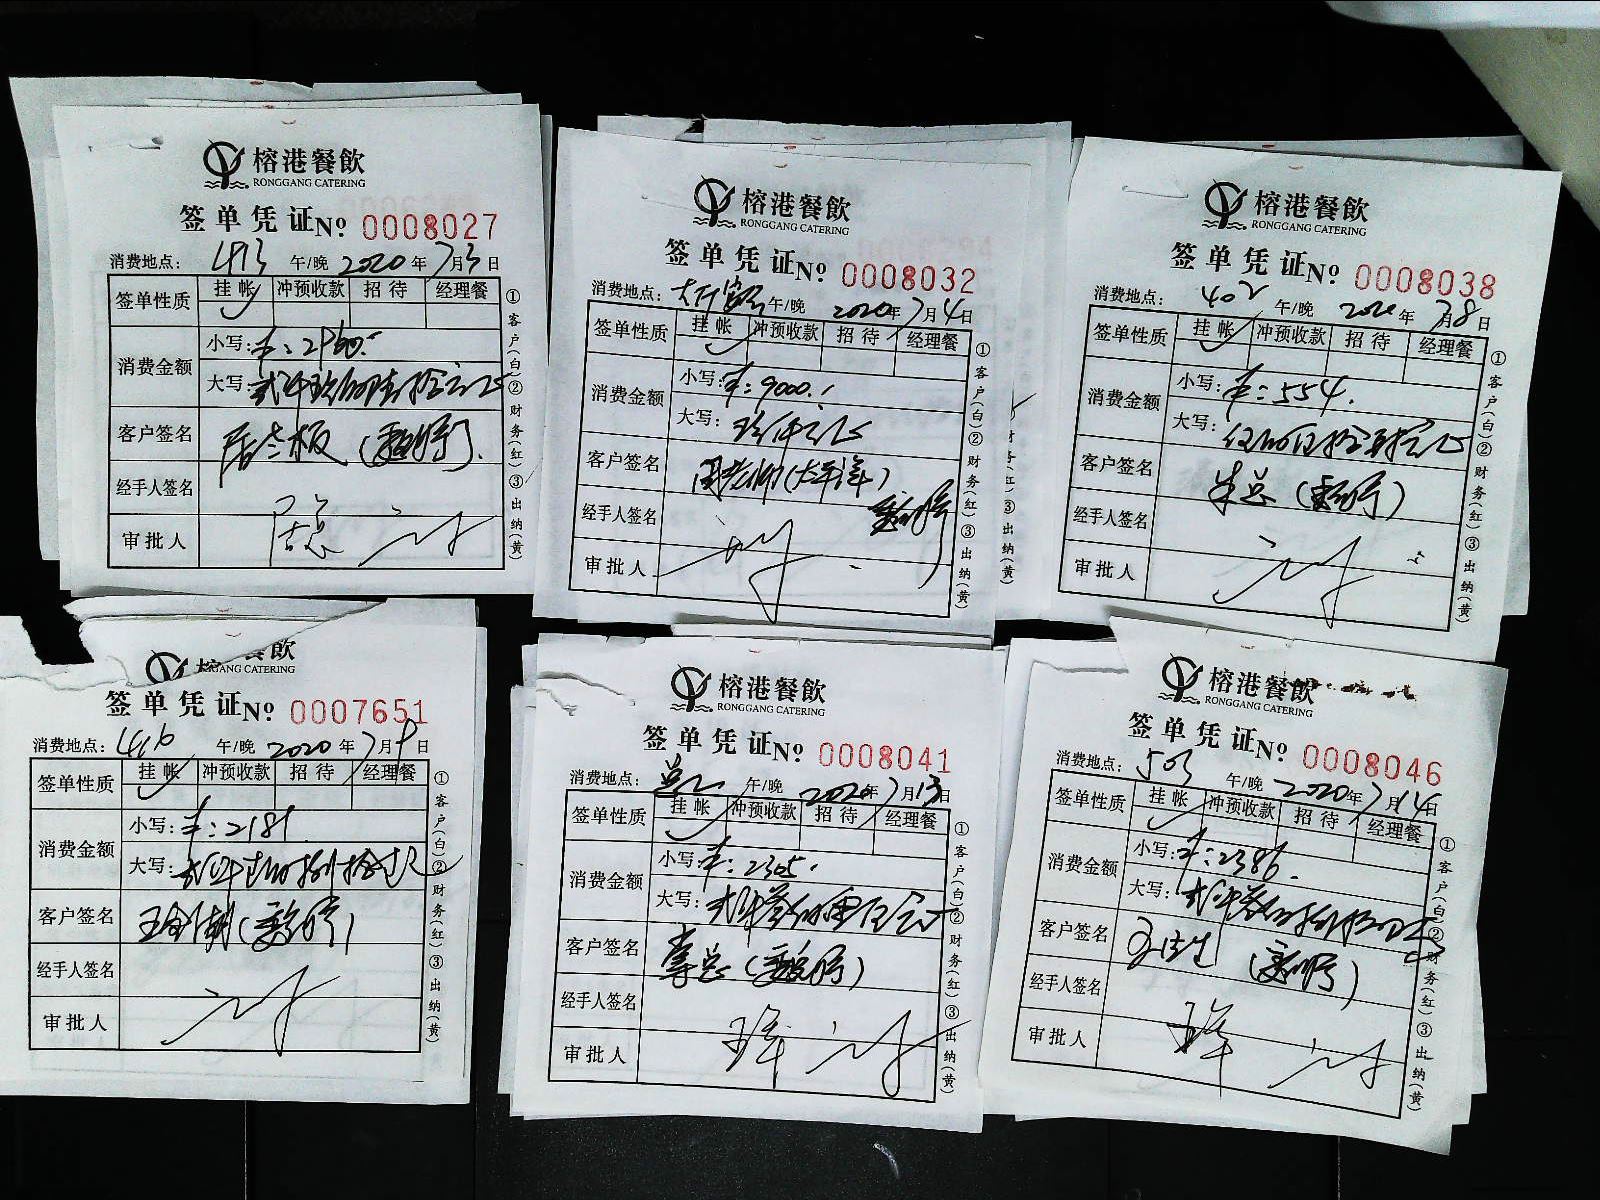 榕港餐飲
RONGGANG CATERING
签单凭证No 0008027
消费地点: 413 午/晚 2020年7月3日
签单性质 挂帐 冲预收款 招待 经理餐
消费金额 小写: ¥:2960.
大写: 贰仟玖佰陆拾元正
客户签名
经手人签名
审批人
①客户(白)②财务(红)③出纳(黄)
榕港餐飲
RONGGANG CATERING
签单凭证No 0008032
消费地点: 午/晚 2020年7月4日
签单性质 挂帐 冲预收款 招待 经理餐
消费金额 小写: ¥:9000.
大写: 玖仟元正
客户签名 周老师
经手人签名
审批人
①客户(白)②财务(红)③出纳(黄)
榕港餐飲
RONGGANG CATERING
签单凭证No 0008038
消费地点: 402 午/晚 2020年7月8日
签单性质 挂帐 冲预收款 招待 经理餐
消费金额 小写: ¥:554.
大写: 伍佰伍拾肆元正
客户签名 朱总
经手人签名
审批人
①客户(白)②财务(红)③出纳(黄)
榕 餐飲
GANG CATERING
签单凭证No 0007651
消费地点: 416 午/晚 2020年7月9日
签单性质 挂帐 冲预收款 招待 经理餐
消费金额 小写: ¥:2181
大写:
客户签名
经手人签名
审批人
①客户(白)②财务(红)③出纳(黄)
榕港餐飲
RONGGANG CATERING
签单凭证No 0008041
消费地点: 午/晚 2020年7月13日
签单性质 挂帐 冲预收款 招待 经理餐
消费金额 小写: ¥:2305.
大写: 贰仟叁佰零伍元正
客户签名 李总
经手人签名
审批人
①客户(白)②财务(红)③出纳(黄)
榕港餐飲
RONGGANG CATERING
签单凭证No 0008046
消费地点: 503 午/晚 2020年7月14日
签单性质 挂帐 冲预收款 招待 经理餐
消费金额 小写: ¥:2386.
大写:
客户签名
经手人签名
审批人
①客户(白)②财务(红)③出纳(黄)